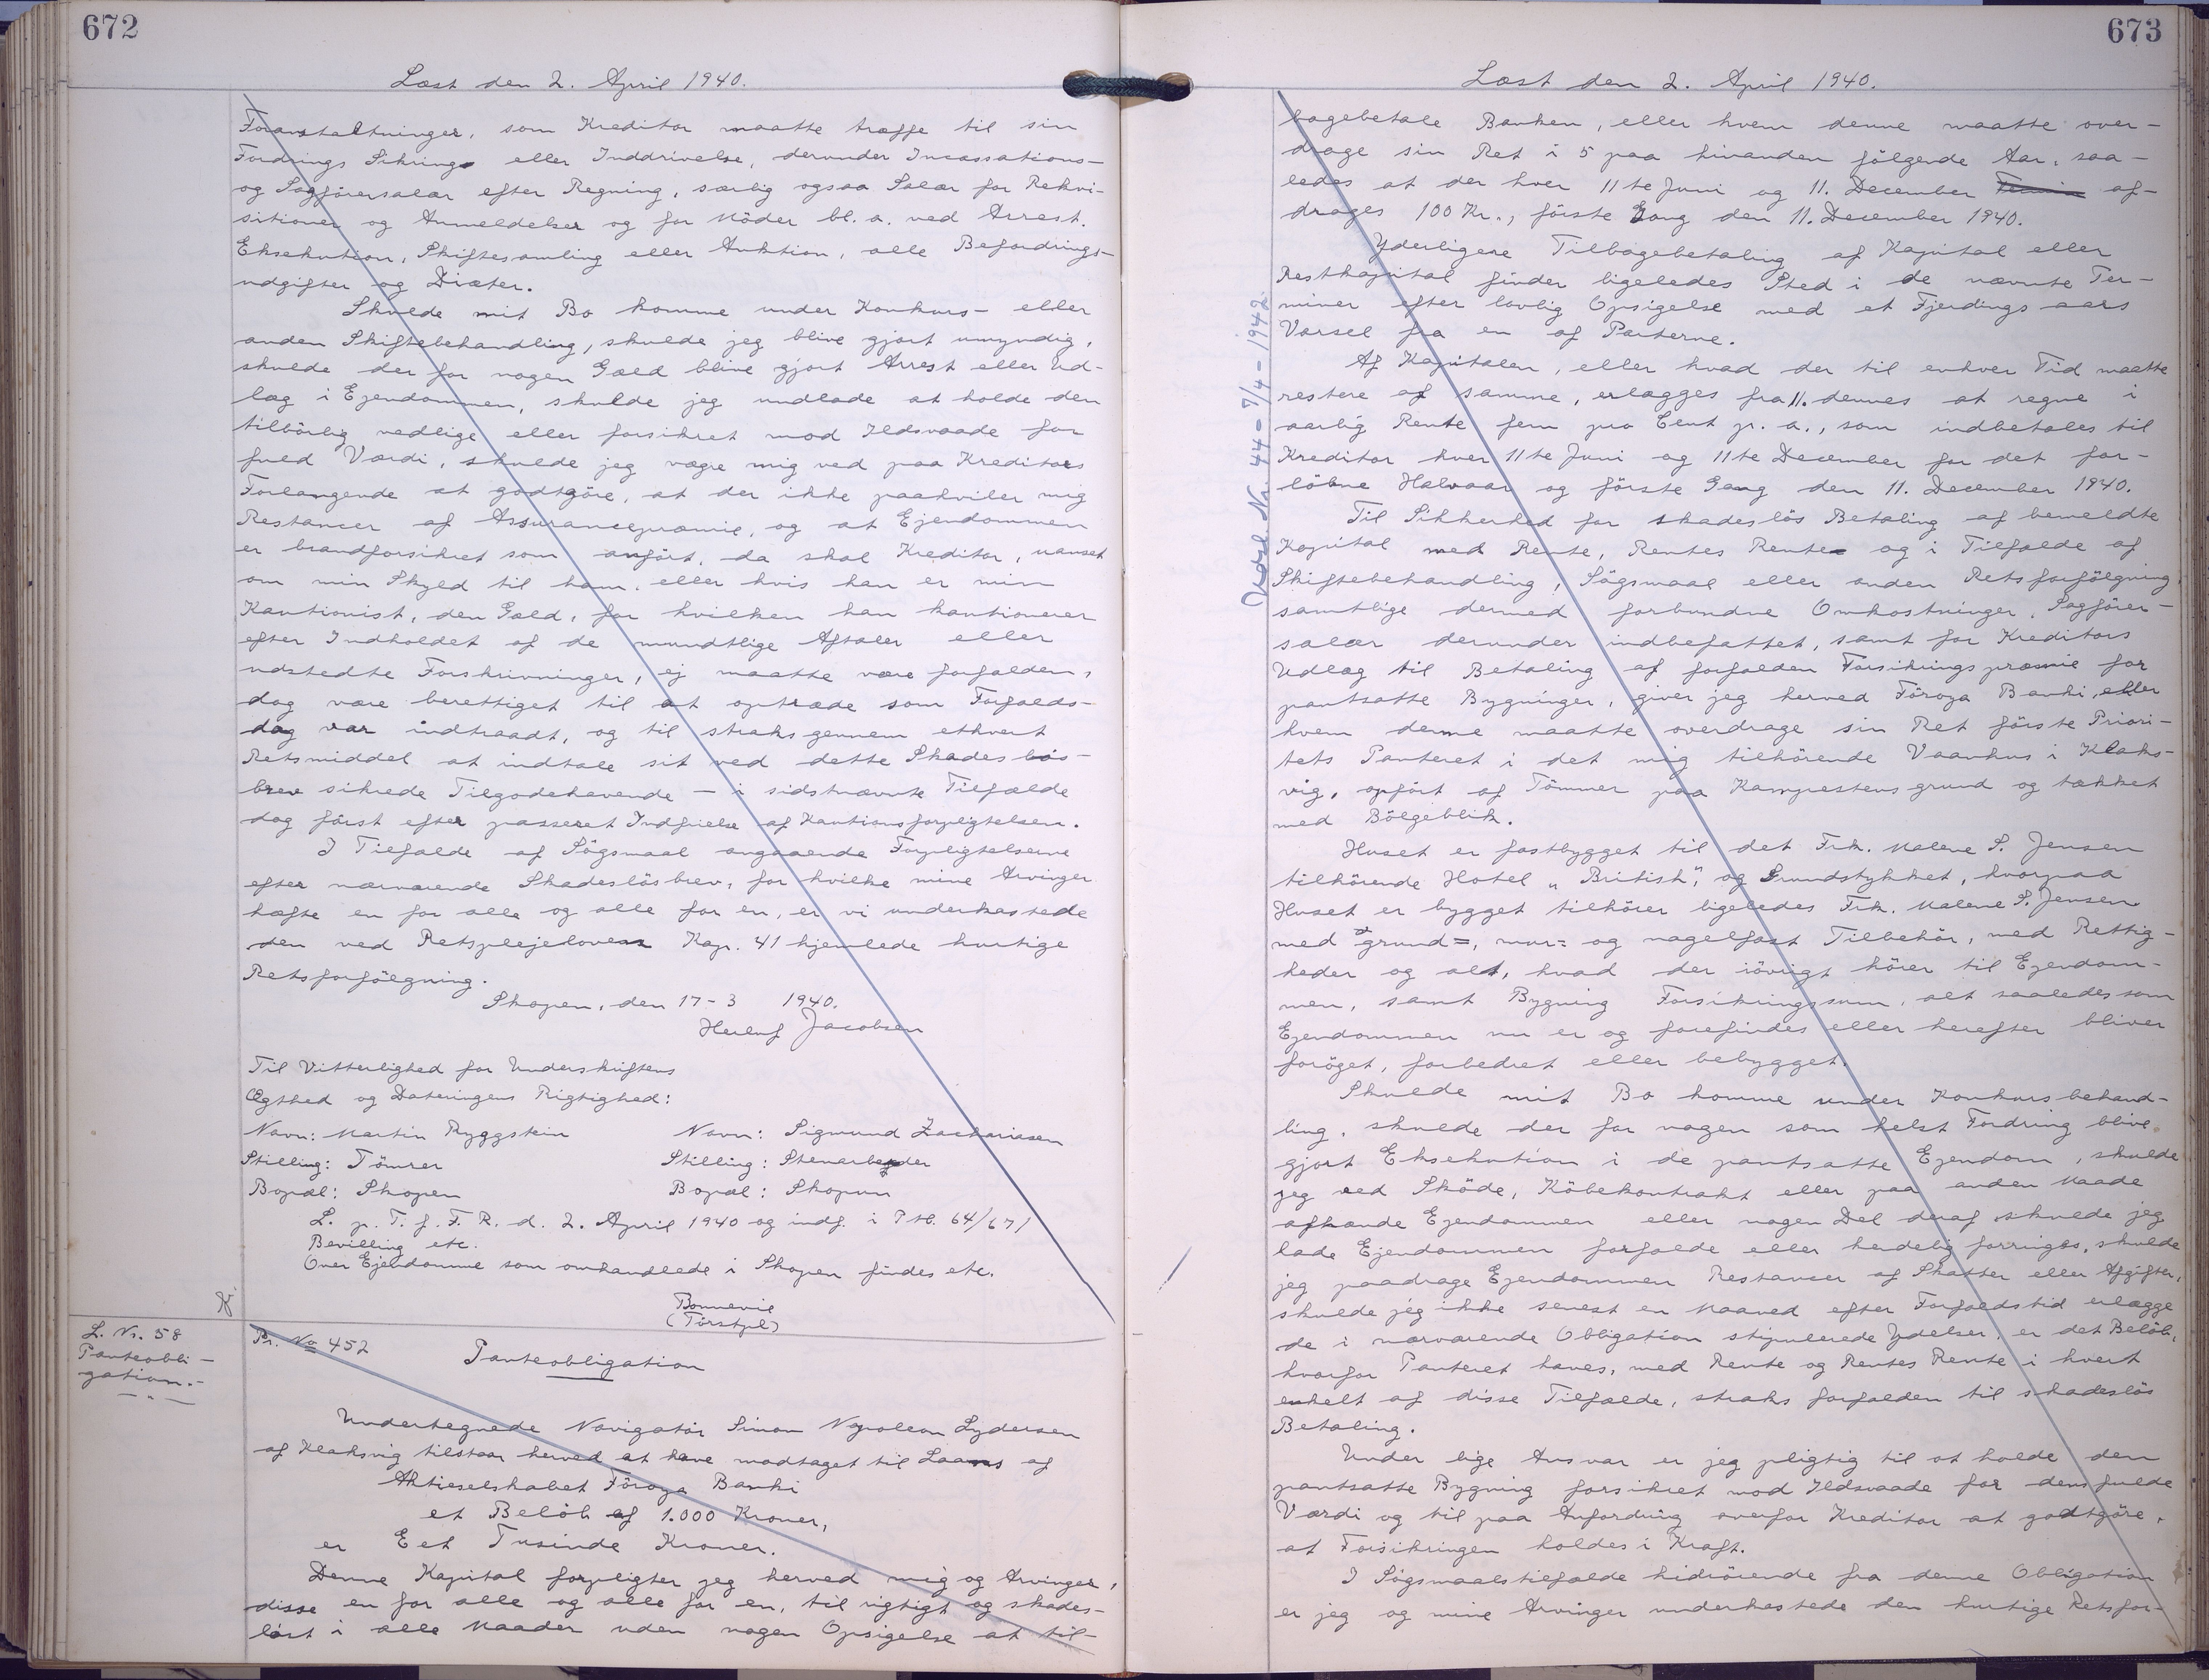 672
Læst den 2. April 1940.
Foranstaltninger, som Kreditor maatte træffe til sin
Fordrings Sikring eller Inddrivelse, derunder Incassations-
og Sagførersalær efter Regning, særlig ogsaa Salær for Rekvi-
sitioner og Anmeldelser og for Møder bl. a. ved Arrest.
Eksekution, Skiftesamling eller Auktion, alle Befordrings-
udgifter og Diæter.
Skulde mit Bo komme under Konkurs- eller
anden Skiftebehandling, skulde jeg blive gjort umyndig,
skulde der for nogen Gæld blive gjort Arrest eller Ud-
læg i Ejendommen, skulde jeg undlade at holde den
tilbørlig vedlige eller forsikret mod Ildsvaade for
fuld Værdi, skulde jeg vægre mig ved paa Kreditors
Forlangende at godtgøre, at der ikke paahviler mig
Restancer af Assurancepræmie, og at Ejendommen
er brandforsikret som anført, da skal Kreditor, uanset
om min Skyld til ham, eller hvis han er min
Kautionist, den Gæld, for hvilken han kautionerer
efter Indholdet af de mundtlige Aftaler eller
udstedte Forskrivninger, ej maatte være forfalden,
dog være berettiget til at optræde som Forfalds-
dag var indtraadt, og til straks gennem ethvert
Retsmiddel at indtale sit ved dette Skadesløs-
brev sikrede Tilgodehavende — i sidstnævnte Tilfælde
dog først efter passeret Indfrielse af Kautionsforpligtelsen.
I Tilfælde af Søgsmaal angaaende Forpligtelserne
efter nærværende Skadesløsbrev, for hvilke mine Arvinger
hæfte en for alle og alle for en, er vi underkastede
den ved Retsplejelovens Kap. 41 hjemlede hurtige
Retsforfølgning.
Skopen, den 17-3 1940.
Herluf Jacobsen
Til Vitterlighed for Underskriftens
Ægthed og Dateringens Rigtighed:
Navn: Martin Ryggstein Navn: Sigmund Zachariasen
Stilling: Tömrer Stilling: Stenarbejder
Bopæl: Skopen Bopæl: Skopun
L. p. T. f. F. R. d. 2. April 1940 og indf. i P.M. 64/67/
Bevilling etc.
Over Ejendomme som omhandlede i Skopen findes etc.
Bonnevie
(Tórstpl)
L. Nr. 58
Panteobli-
gation.-
Pr. No 452
Panteobligation
Undertegnede Navigatör Simon Napoleon Lydersen
af Klaksvig tilstaar herved at have modtaget til Laans af
Aktieselskabet Föroya Banki
et Belöb af 1.000 Kroner,
er Eet Tusinde Kroner.
Denne Kapital forpligter jeg herved mig og Arvinger,
disse en for alle og alle for en, til rigtigt og skades-
löst i alle Maader uden nogen Opsigelse at til-
673
Læst den 2. April 1940.
bagebetale Banken, eller hvem denne maatte over-
drage sin Ret i 5 paa hinanden fölgende Aar, saa-
ledes at der hver 11te Juni og 11. December Termin af-
drages 100 Kr., förste Gang den 11. December 1940.
Yderligere Tilbagebetaling af Kapital eller
Restkapital finder ligeledes Sted i de nævnte Ter-
miner efter lovlig Opsigelse med et Fjerdingsaars
Varsel fra en af Parterne.
Af Kapitalen, eller hvad der til enhver Tid maatte
restere af samme, erlægges fra 11. dennes at regne i
aarlig Rente fem pro Cent pr. a., som indbetales til
Kreditor hver 11te Juni og 11te December for det for-
löbne Halvaar og förste Gang den 11. December 1940.
Til Sikkerhed for skadeslös Betaling af bemeldte
Kapital med Rente, Rentes Rente og i Tilfælde af
Skiftebehandling, Sögsmaal eller anden Retsforfölgning
samtlige dermed forbundne Omkostninger, Sagförer-
salær derunder indbefattet, samt for Kreditors
Udlæg til Betaling af forfalden Forsikringspræmie for
pantsatte Bygninger, giver jeg herved Föroya Banki, eller
hvem denne maatte overdrage sin Ret förste Priori-
tets Panteret i det mig tilhörende Vaanhus i Klaks-
vig, opfört af Tömmer paa Kampestensgrund og tækket
med Bölgeblik.
Huset er fastbygget til det Frk. Malene S. Jensen
tilhörende Hotel „British”, og Grundstykket, hvorpaa
Huset er bygget tilhörer ligeledes Frk. Malene S. Jensen
med grund=, mur= og nagelfast Tilbehör, med Rettig-
heder og alt, hvad der iövrigt hörer til Ejendom-
men, samt Bygning Forsikringssum, alt saaledes som
Ejendommen nu er og forefindes eller herefter bliver
foröget, forbedret eller bebygget.
Skulde mit Bo komme under Konkursbehand-
ling, skulde der for nogen som helst Fordring blive
gjort Eksekution i de pantsatte Ejendom, skulde
jeg ved Sköde, Köbekontrakt eller paa anden Maade
afhænde Ejendommen eller nogen Del deraf skulde jeg
lade Ejendommen forfalde eller kendelig forringes, skulde
jeg paadrage Ejendommen Restancer af Skatter eller Afgifter,
skulde jeg ikke senest en Maaned efter Forfaldstid erlægge
de i nærværende Obligation stipulerede Ydelser, er det Belöb,
hvorfor Panteret haves, med Rente og Rentes Rente i hvert
enkelt af disse Tilfælde, straks forfalden til skadeslös
Betaling.
Under lige Ansvar er jeg pligtig til at holde den
pantsatte Bygning forsikret mod Ildsvaade for dens fulde
Værdi og til paa Anfordring overfor Kreditor at godtgöre,
at Forsikringen holdes i Kraft.
I Sögsmaalstilfælde hidrörende fra denne Obligation
er jeg og mine Arvinger underkastede den hurtige Retsfor-
Udsl. Nr. 44 - 7/4 - 1942.